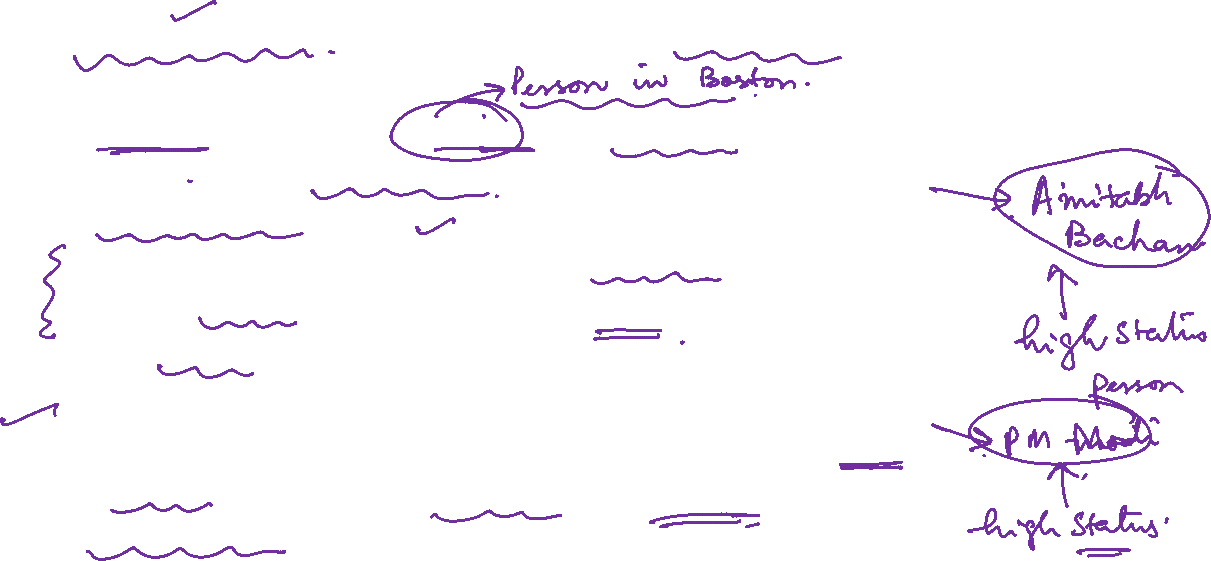 Person in Boston.
Amitabh
Bachan
high status
person
PM Modi
high status.